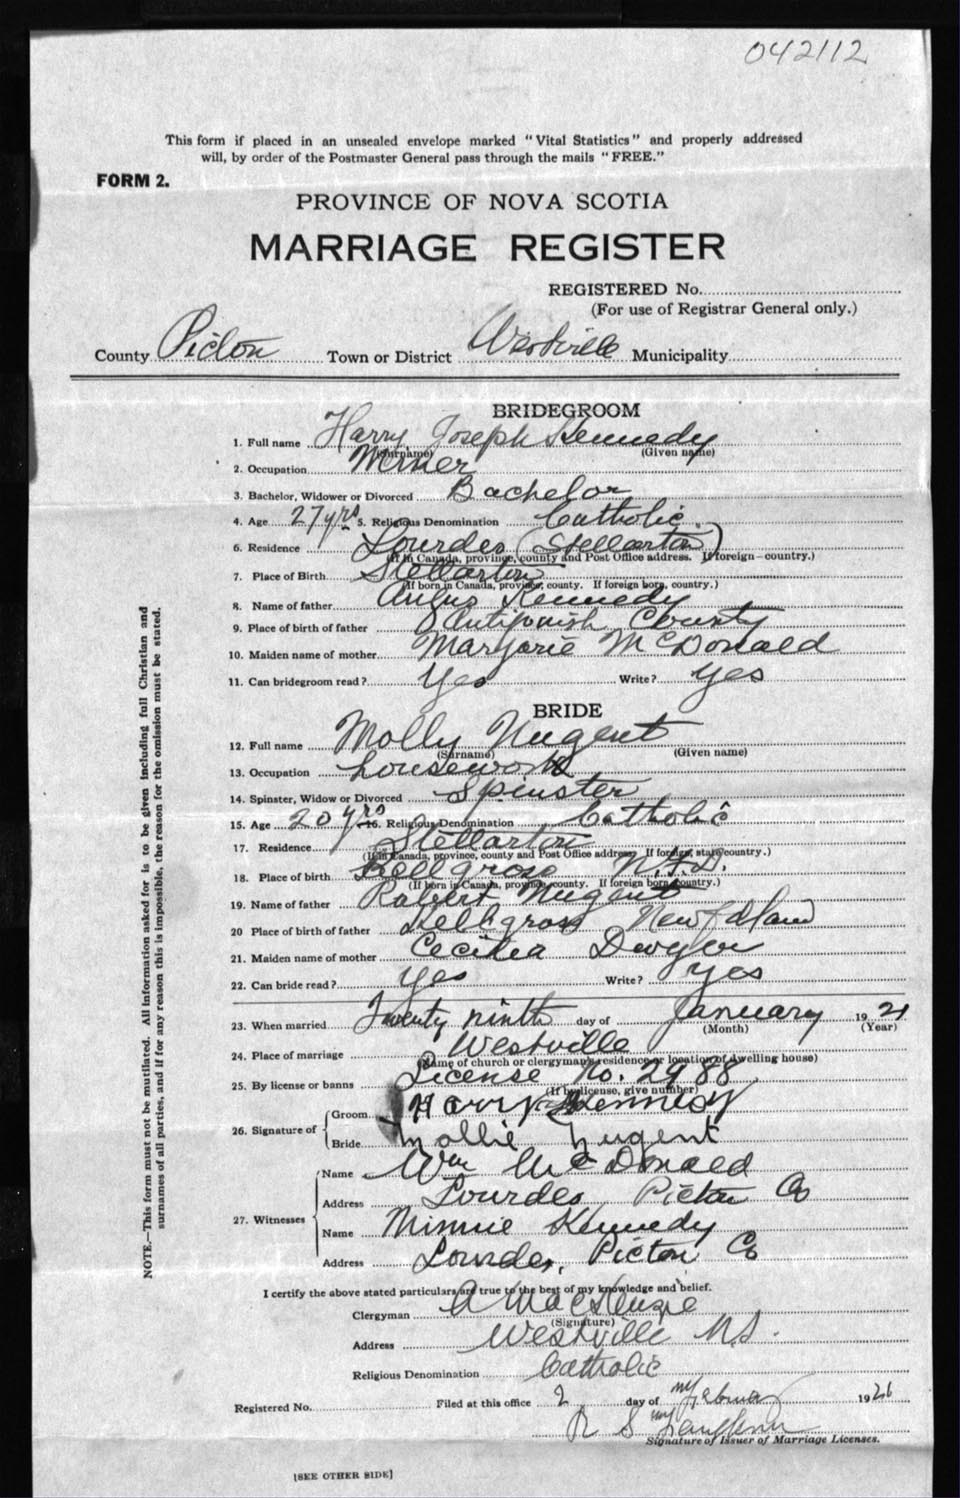 042112
This form if placed in an unsealed envelope marked "Vital Statistics" and properly addressed
will, by order of the Postmaster General pass through the mails "FREE."
FORM 2.
PROVINCE OF NOVA SCOTIA
MARRIAGE REGISTER
REGISTERED No.
(For use of Registrar General only.)
County Pictou Town or District Westville Municipality
BRIDEGROOM
1. Full name Harry Joseph Kennedy
(Surname) (Given name)
2. Occupation Miner
3. Bachelor, Widower or Divorced Bachelor
4. Age 27 yrs 5. Religious Denomination Catholic
6. Residence Lourdes (Stellarton)
(If in Canada, province, county and Post Office address. If foreign—country.)
7. Place of Birth Stellarton
(If born in Canada, province, county. If foreign born, country.)
8. Name of father Angus Kennedy
9. Place of birth of father Antigonish County
10. Maiden name of mother Marjorie McDonald
11. Can bridegroom read? Yes Write? Yes
BRIDE
12. Full name Molly Nugent
(Surname) (Given name)
13. Occupation housework
14. Spinster, Widow or Divorced Spinster
15. Age 20 yrs 16. Religious Denomination Catholic
17. Residence Stellarton
(If in Canada, province, county and Post Office address, If foreign, state country.)
18. Place of birth Bellgrose N.F.D.
(If born in Canada, province, county. If foreign born country.)
19. Name of father Robert Nugent
20 Place of birth of father Newfdland
21. Maiden name of mother Cecilia Dwyer
22. Can bride read? yes Write? yes
23. When married Twenty ninth day of January 19
(Month) (Year)
24. Place of marriage Westville
(Name of church or clergyman's residence or location of dwelling house)
25. By license or banns License No. 2988
(If by license, give number)
26. Signature of
Groom Harry Kennedy
Bride Mollie Nugent
27. Witnesses
Name Wm McDonald
Address Lourdes Pictou Co
Name Minnie Kennedy
Address Lourdes, Pictou Co
I certify the above stated particulars are true to the best of my knowledge and belief.
Clergyman A MacKenzie
(Signature)
Address Westville N.S.
Religious Denomination Catholic
Registered No. Filed at this office 2 day of February 1926
R S
Signature of Issuer of Marriage Licenses.
[SEE OTHER SIDE]
NOTE.—This form must not be mutilated. All information asked for is to be given including full Christian and
surnames of all parties, and if for any reason this is impossible, the reason for the omission must be stated.